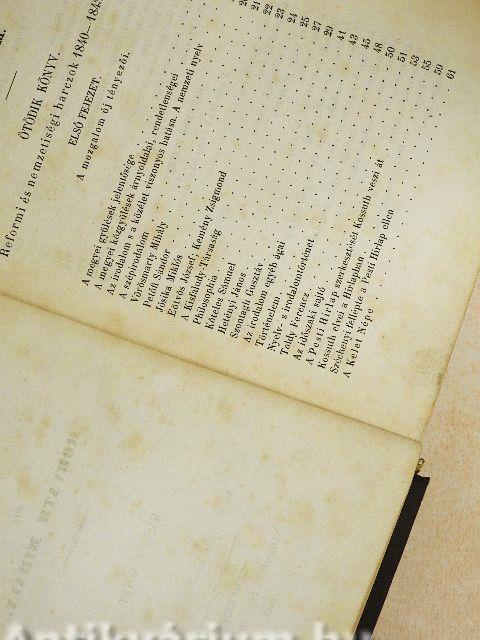 ÖTÖDIK KÖNYV.
Reformi és nemzetiségi harczok 1840-184
ELSŐ FEJEZET.
A mozgalom új tényezői.
A megyei gyűlések jelentősége
A megyei közgyűlések árnyoldalai, rendetlenségei
Az irodalom s a közélet viszonyos hatása. A nemzeti nyelv
A szépirodalom
Vörösmarty Mihály
Petőfi Sándor
Jósika Miklós
Eötvös József; Kemény Zsigmond
A Kisfaludy-Társaság
Philosophia
Köteles Sámuel
Hetényi János
Szontagh Gusztáv
Az irodalom egyéb ágai
Történelem
Nyelv- s irodalomtörténet
Toldy Ferencz
Az időszaki sajtó
A Pesti Hirlap szerkesztését Kossuth veszi át
Kossuth elvei a Hirlapban
Széchenyi föllépte a Pesti Hirlap ellen
A Kelet Népe
21
22
23
24
25
27
29
41
43
45
48
50
51
52
55
59
61
Antikvárium.hu